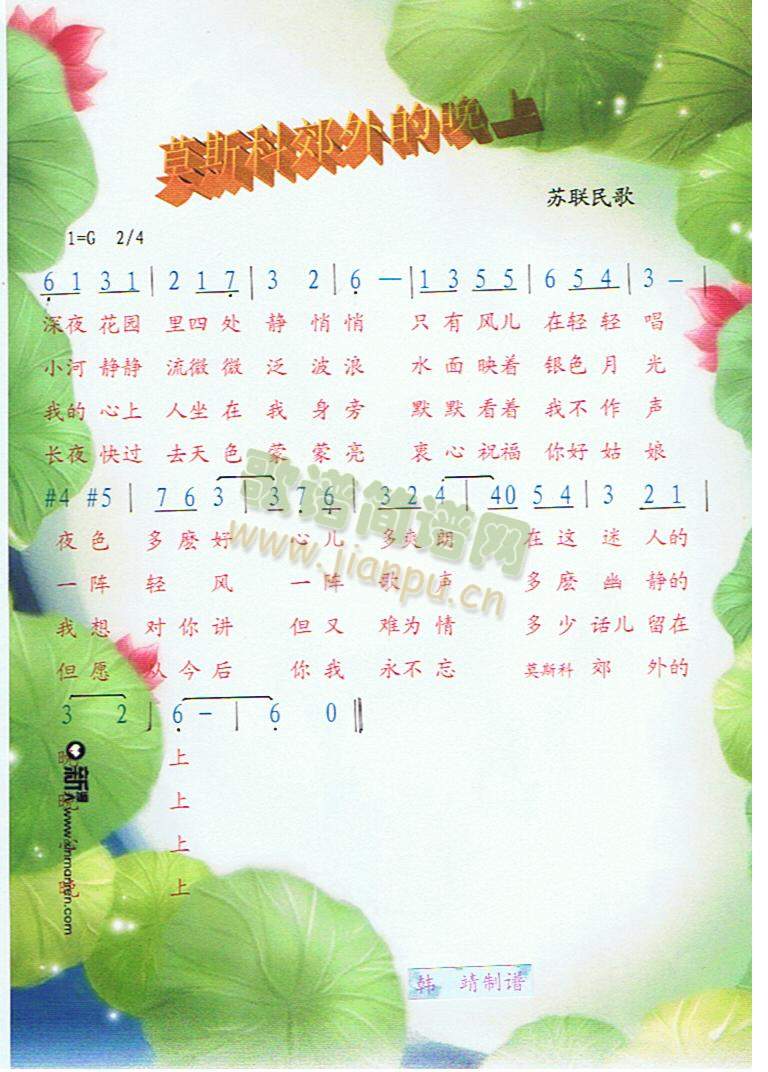 莫斯科郊外的晚上
苏联民歌
1=G 2/4
6 1 3 1 | 2 1 7 | 3 2 | 6 — | 1 3 5 5 | 6 5 4 | 3 — |
深夜 花园 里四 处 静 悄悄 只 有 风儿 在轻 轻 唱
小河 静静 流微 微 泛 波 浪 水 面 映着 银色 月 光
我的 心上 人坐 在 我 身 旁 默 默 看着 我不 作 声
长夜 快过 去天 色 蒙 蒙 亮 衷 心 祝福 你好 姑 娘
#4 #5 | 7 6 3 | 3 7 6 | 3 2 4 | 4 0 5 4 | 3 2 1 |
夜 色 多 麽 好 心 儿 多 爽 朗 在 这 迷 人的
一 阵 轻 风 一 阵 歌 声 多 麽 幽 静的
我 想 对 你 讲 但 又 难 为 情 多 少 话儿 留在
但 愿 从 今 后 你 我 永 不 忘 莫斯科 郊 外的
3 2 | 6 — | 6 0 ‖
上
上
上
上
歌谱简谱网
www.jianpu.cn
韩 靖制谱